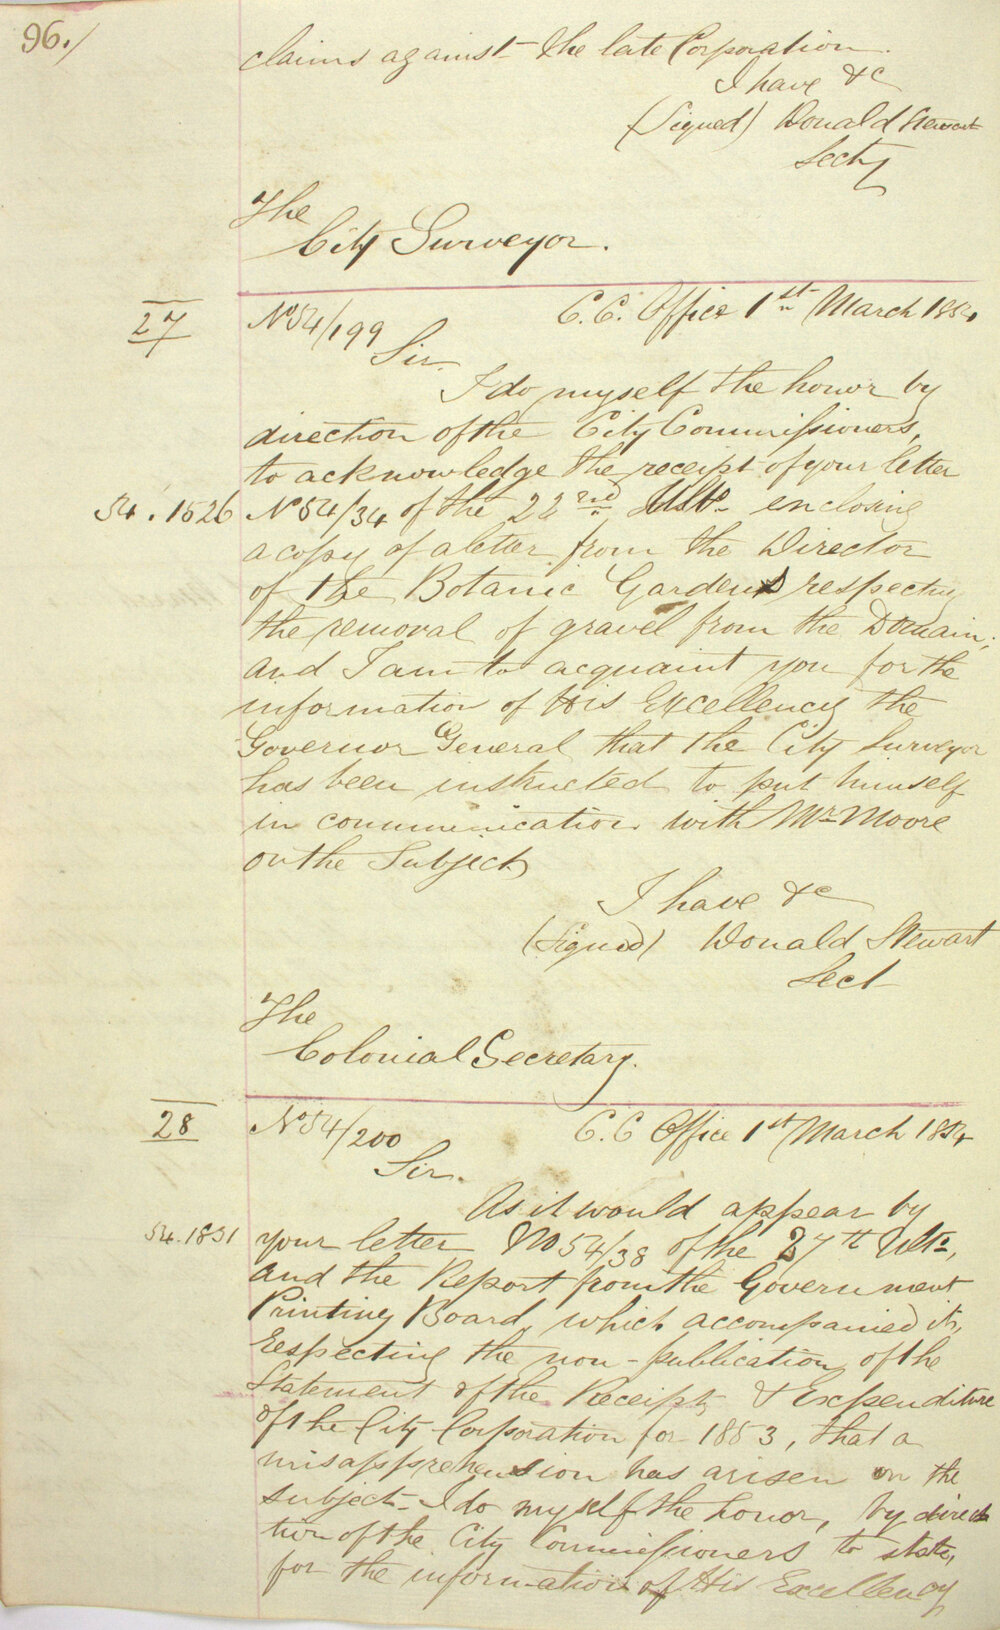 96./
claims against the late Corporation.
I have &c
(Signed) Donald Stewart
Secty
The
City Surveyor.
27
No 54/199
C.C. Office 1st March 1854
Sir
I do myself the honor by
direction of the City Commissioners,
to acknowledge the receipt of your letter
54.1526
No 54/34 of the 22nd Ulto enclosing
a copy of a letter from the Director
of the Botanic Gardens respecting
the removal of gravel from the Domain;
and I am to acquaint you for the
information of His Excellency the
Governor General that the City Surveyor
has been instructed to put himself
in communication with Mr Moore
on the Subject
I have &c
(Signed) Donald Stewart
Sect
The
Colonial Secretary.
28
No 54/200
C.C Office 1st March 1854
Sir.
As it would appear by
54.1831
your letter No 54/38 of the 27th Ulto,
and the Report from the Government
Printing Board, which accompanied it,
respecting the non-publication of the
Statement of the Receipts & Expenditure
of the City Corporation for 1853, that a
misapprehension has arisen on the
subject - I do myself the honor, by direc
tion of the City Commissioners to state,
for the information of His Excellency